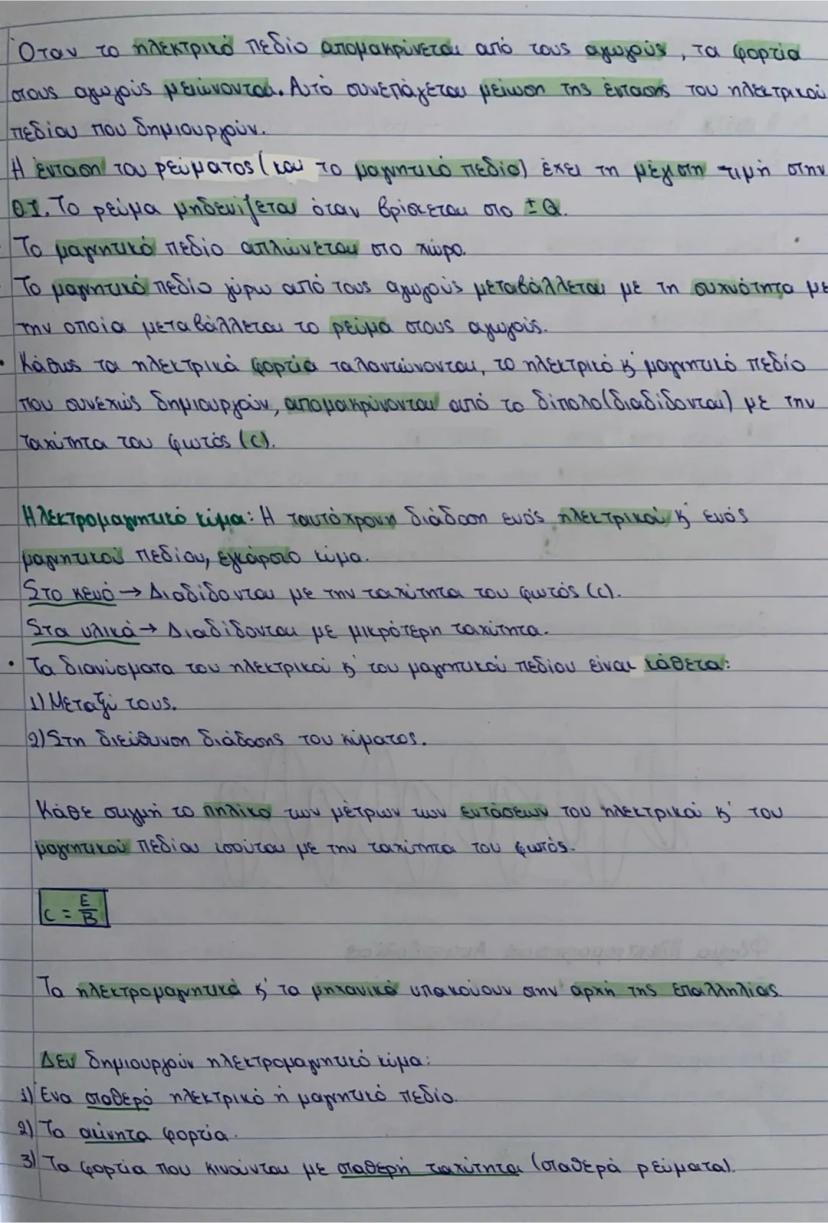 Όταν το ηλεκτρικό πεδίο απομακρύνεται από τους αγωγούς, τα φορτία
στους αγωγούς μειώνονται. Αυτό συνεπάγεται μείωση της έντασης του ηλεκτρικού
πεδίου που δημιουργούν.
Η ένταση του ρεύματος (και το μαγνητικό πεδίο) έχει τη μέγιστη τιμή στην
Θ.Ι. Το ρεύμα μηδενίζεται όταν βρίσκεται στο ±Q.
Το μαγνητικό πεδίο απλώνεται στο χώρο.
Το μαγνητικό πεδίο γύρω από τους αγωγούς μεταβάλλεται με τη συχνότητα με
την οποία μεταβάλλεται το ρεύμα στους αγωγούς.
• Κάθως τα ηλεκτρικά φορτία ταλαντώνονται, το ηλεκτρικό ϗ μαγνητικό πεδίο
που συνεχώς δημιουργούν, απομακρύνονται από το δίπολο (διαδίδονται) με την
ταχύτητα του φωτός (c).
Ηλεκτρομαγνητικό κύμα: Η ταυτόχρονη διάδοση ενός ηλεκτρικού ϗ ενός
μαγνητικού πεδίου, εγκάρσιο κύμα.
Στο κενό → Διαδίδονται με την ταχύτητα του φωτός (c).
Στα υλικά → Διαδίδονται με μικρότερη ταχύτητα.
• Τα διανύσματα του ηλεκτρικού ϗ του μαγνητικού πεδίου είναι κάθετα:
1) Μεταξύ τους.
2) Στη διεύθυνση διάδοσης του κύματος.
Κάθε στιγμή το πηλίκο των μέτρων των εντάσεων του ηλεκτρικού ϗ του
μαγνητικού πεδίου ισούται με την ταχύτητα του φωτός.
c = E/B
Τα ηλεκτρομαγνητικά ϗ τα μηχανικά υπακούουν στην αρχή της επαλληλίας.
Δεν δημιουργούν ηλεκτρομαγνητικό κύμα:
1) Ένα σταθερό ηλεκτρικό ή μαγνητικό πεδίο.
2) Τα ακίνητα φορτία.
3) Τα φορτία που κινούνται με σταθερή ταχύτητα (σταθερά ρεύματα).